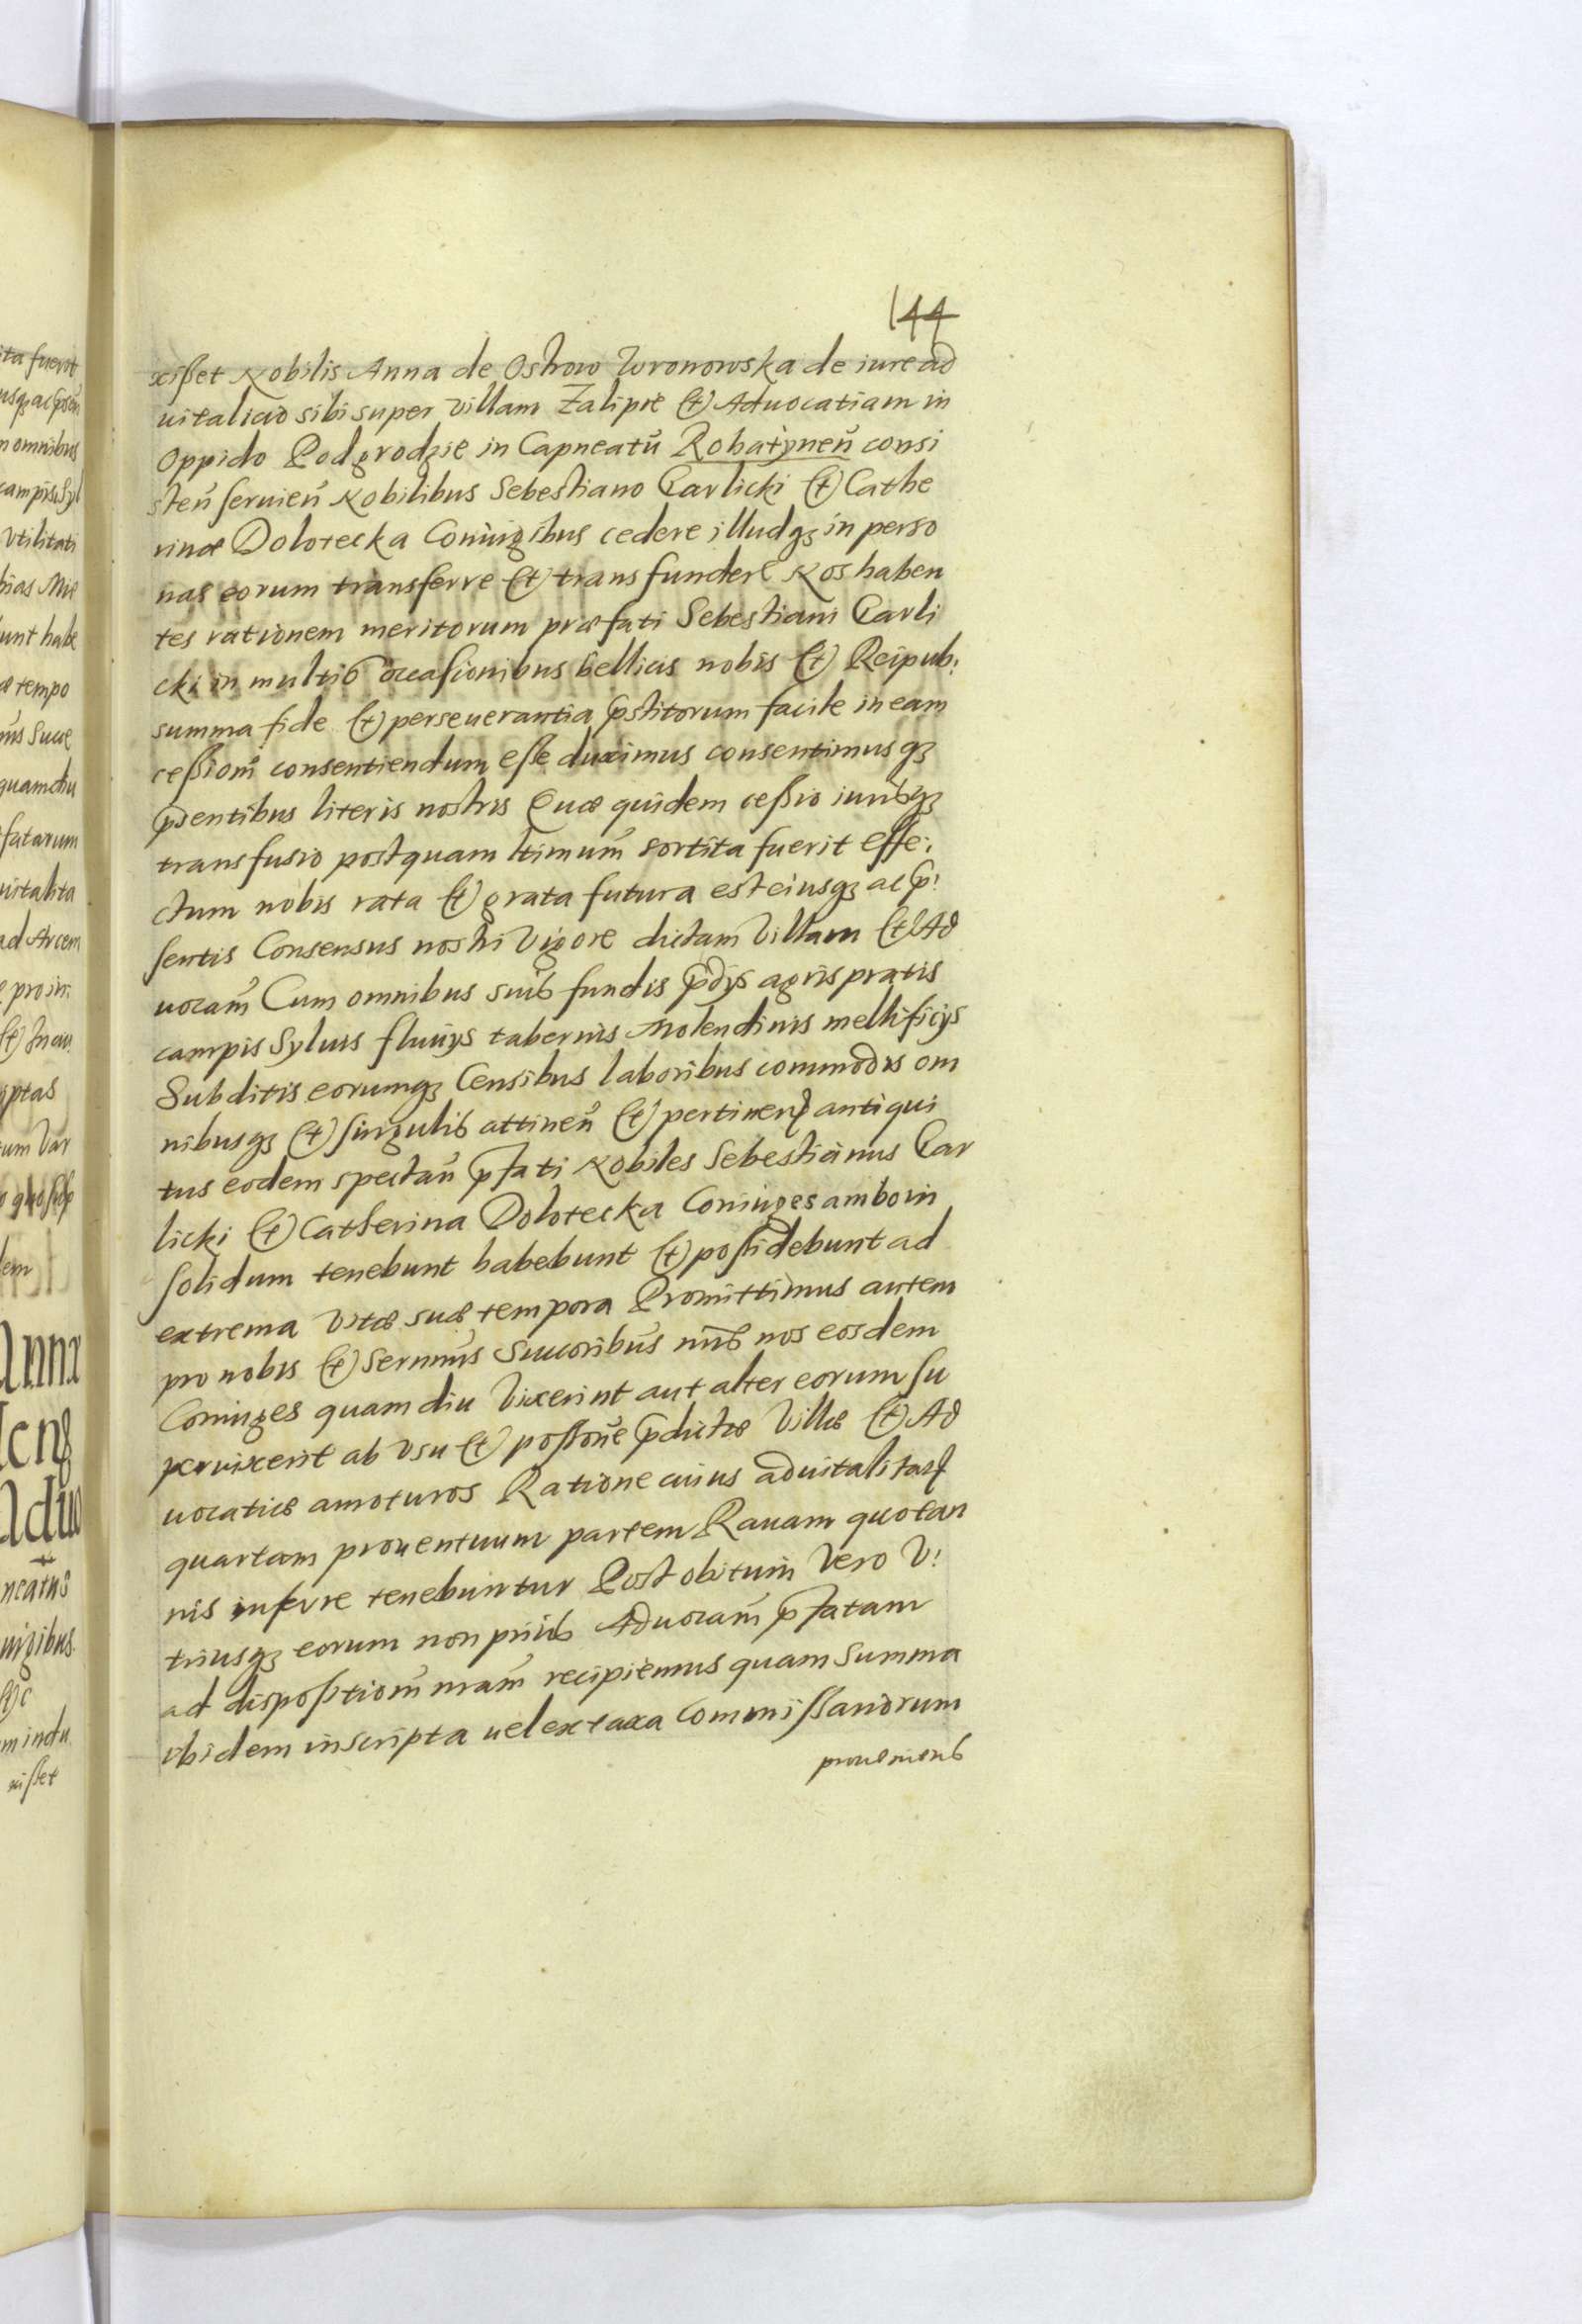 144
xißet Nobilis Anna de Ostrow Wronowska de iure ad
uitalicio sibi super villam Zalipie (et) Aduocatiam in
Oppido Podgrodzie in Capneatu̅ Rohatÿnen̅ consi
sten̅ seruien̅ Nobilibus Sebestiano Carlicki (et) Cathe
rinæ Dolotecka Coniugibus cedere illudqꝫ in perso
nas eorum transferre (et) transfundere Nos haben
tes rationem meritorum præfati Sebestiani Carli
cki in multis occasionibus bellicis nobis (et) Reipub:
summa fide (et) perseuerantia p̅stitorum facile in eam
cessiom̅ consentiendum esse duximus consentimusqꝫ
p̅sentibus literis nostris Quæ quidem cessio iurisqꝫ
transfusio postquam ltimum̅ sortita fuerit effe:
ctum nobis rata (et) grata futura est eiusqꝫ ac p̅:
sentis Consensus nostri Vigore dictam Villam (et) Ad
uocam̅ Cum omnibus suis fundis p̅dÿs agris pratis
campis Syluis fluuÿs tabernis Molendinis mellificÿs
Subditis eorumqꝫ Censibus laboribus commodis om
nibusqꝫ (et) singulis attinen̅ (et) pertinen̅ antiqui
tus eodem spectan̅ p̅fati Nobiles Sebestianus Car
licki (et) Catherina Dolotecka Coniuges ambo in
solidum tenebunt habebunt (et) possidebunt ad
extrema Vitæ suæ tempora Promittimus autem
pro nobis (et) Sermu̅s Succoribu̅s nr̅is nos eosdem
Coniuges quamdiu Vixerint aut alter eorum su
peruixerit ab Vsu (et) posson̅e p̅dictæ Villæ (et) Ad
uocatiæ amoturos Ratione cuius aduitalitatis
quartam prouentuum partem Rauam quotan
nis inferre tenebuntur Post obitum Vero V:
triusqꝫ eorum non prius Aduocam̅ p̅fatam
ad dispositiom̅ nram̅ recipiemus quam Summa
ibidem inscripta uel ex taxa Commissariorum
proueniens